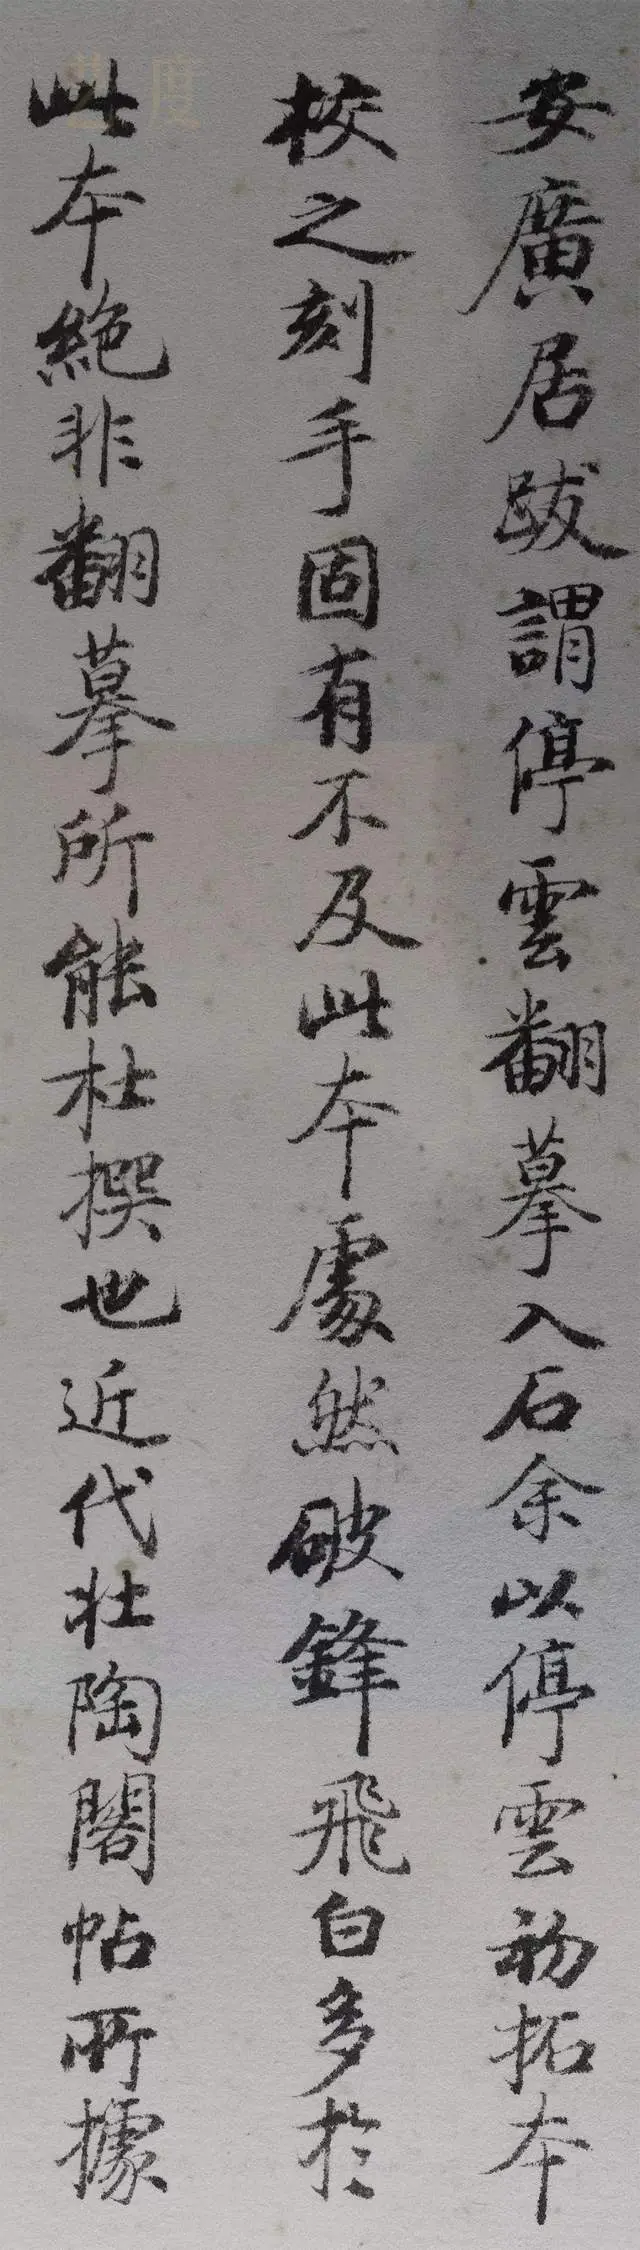 安廣居跋謂停雲翻摹入石余以停雲初拓本
校之刻手固有不及此本處然破鋒飛白多於
此本絕非翻摹所能杜撰也近代壯陶閣帖所據